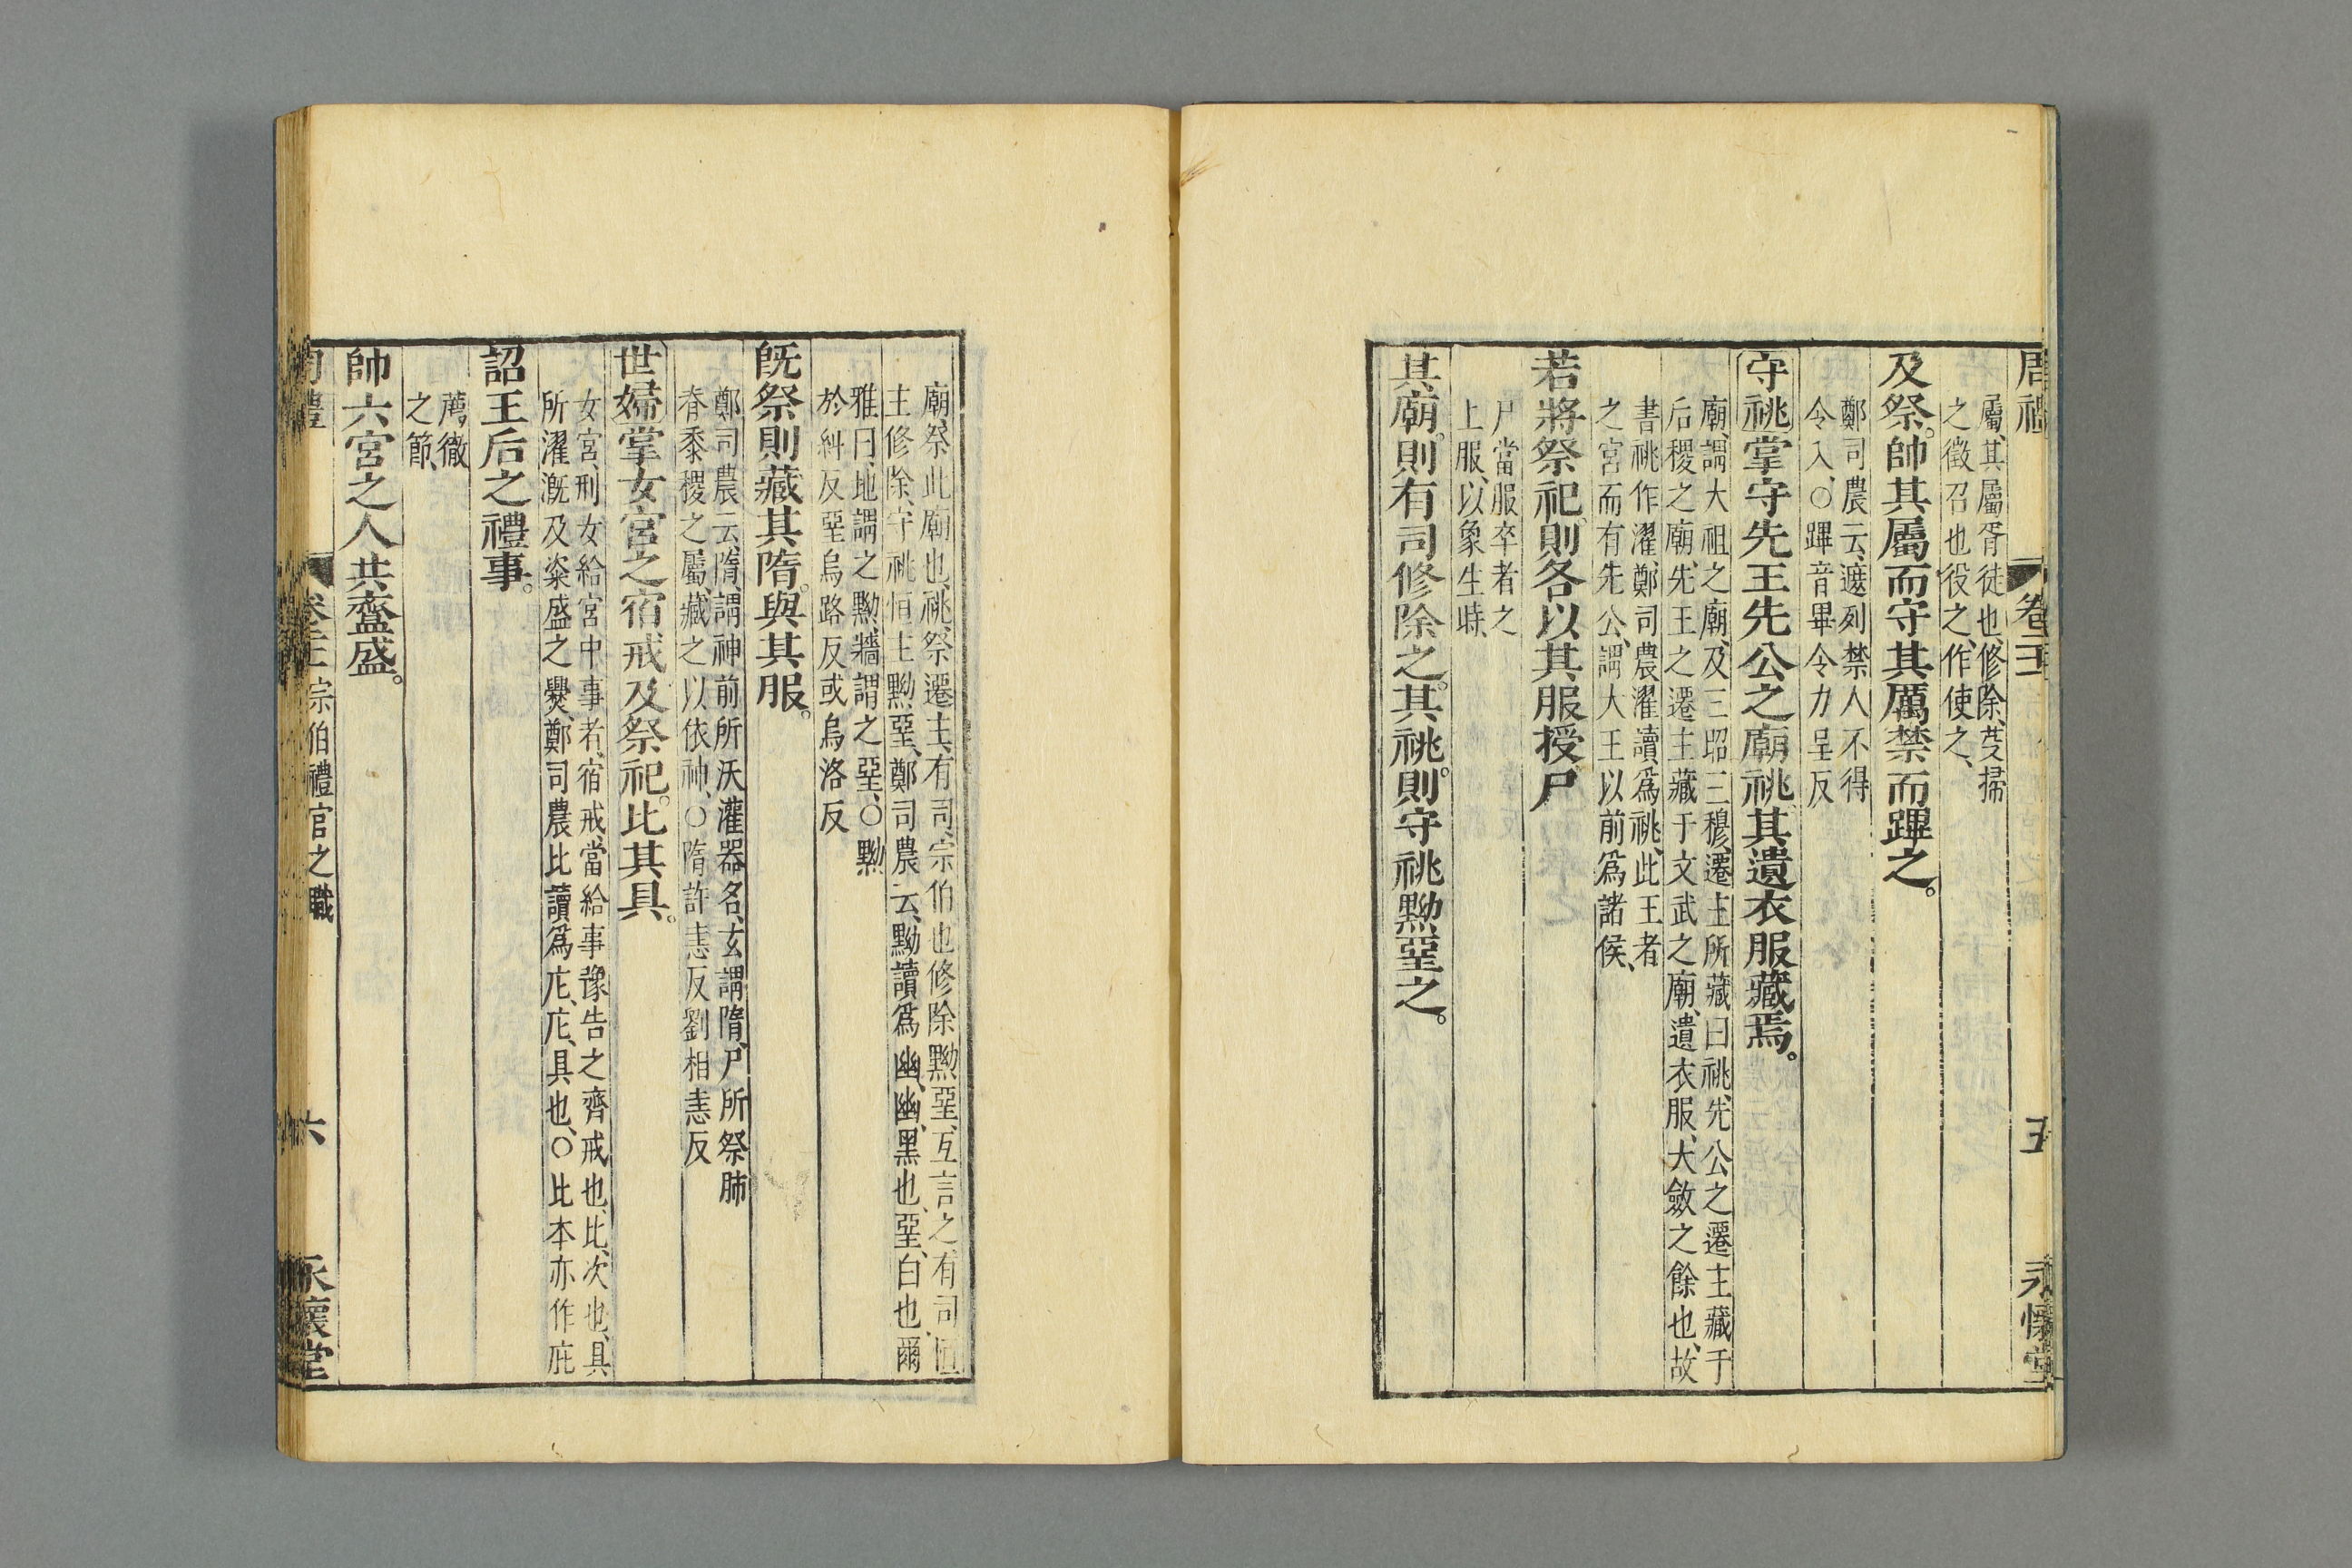 周禮 卷二十一 五 永懷堂
屬其屬胥徒也、修除、芟掃
之徵召也役之、作使之、
及祭。帥其屬而守其厲禁而蹕之。
鄭司農云、遮列禁人不得
令入、○蹕音畢令力呈反
守祧掌守先王先公之廟祧。其遺衣服藏焉。
廟、謂大祖之廟、及三昭三穆、遷主所藏曰祧、先公之遷主藏于
后稷之廟、先王之遷主藏于文武之廟、遺衣服、大斂之餘也、故
書祧作濯、鄭司農濯讀爲祧、此王者
之宮而有先公、謂大王以前爲諸侯、
若將祭祀。則各以其服授尸
尸當服卒者之
上服、以象生時、
其廟。則有司修除之。其祧。則守祧黝堊之。
廟、祭此廟也、祧、祭遷主、有司、宗伯也修除黝堊、互言之、有司、恒
主修除、守祧恒主黝堊、鄭司農云、黝讀爲幽、幽、黑也、堊、白也、爾
雅曰、地謂之黝、牆謂之堊、○黝
於糾反堊烏路反或烏洛反
旣祭則藏其隋。與其服。
鄭司農云、隋、謂神前所沃灌器名、玄謂隋、尸所祭肺
脊黍稷之屬、藏之以依神、○隋許恚反劉相恚反
世婦掌女宮之宿戒及祭祀。比其具。
女宮、刑女給宮中事者、宿戒、當給事豫告之齊戒也、比、次也、具
所濯漑及粢盛之爨、鄭司農比讀爲庀、庀、具也、○比本亦作庇
詔王后之禮事。
薦徹
之節、
帥六宮之人共齍盛。
周禮 卷二十一 宗伯禮官之職 六 永懷堂